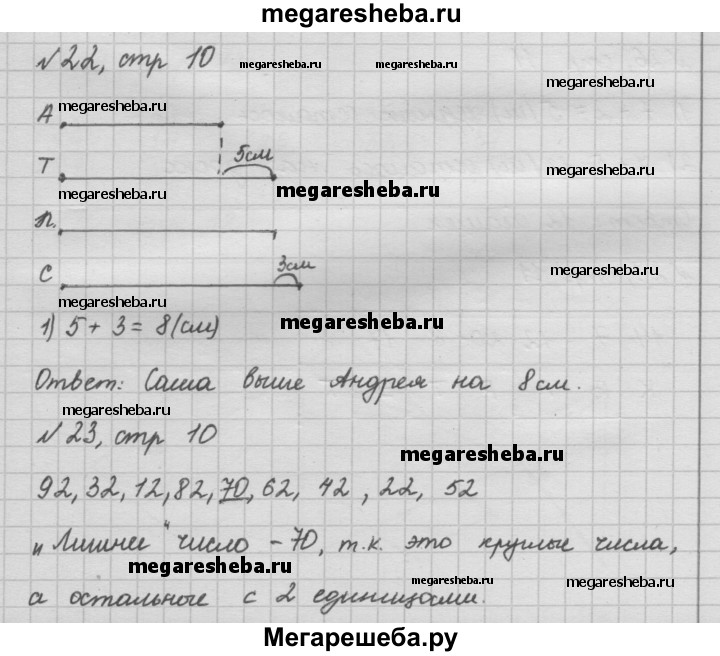 megaresheba.ru
№22, стр 10
megaresheba.ru megaresheba.ru
megaresheba.ru
А megaresheba.ru
5см
Т
megaresheba.ru
megaresheba.ru
megaresheba.ru
П.
3см
С
megaresheba.ru
megaresheba.ru
1) 5 + 3 = 8 (см)
megaresheba.ru
Ответ: Саша выше Андрея на 8 см.
megaresheba.ru
№23, стр 10
megaresheba.ru
92, 32, 12, 82, 70, 62, 42, 22, 52
„Лишнее" число – 70, т.к. это круглые числа,
megaresheba.ru
megaresheba.ru megaresheba.ru
а остальные с 2 единицами.
Мегарешеба.ру